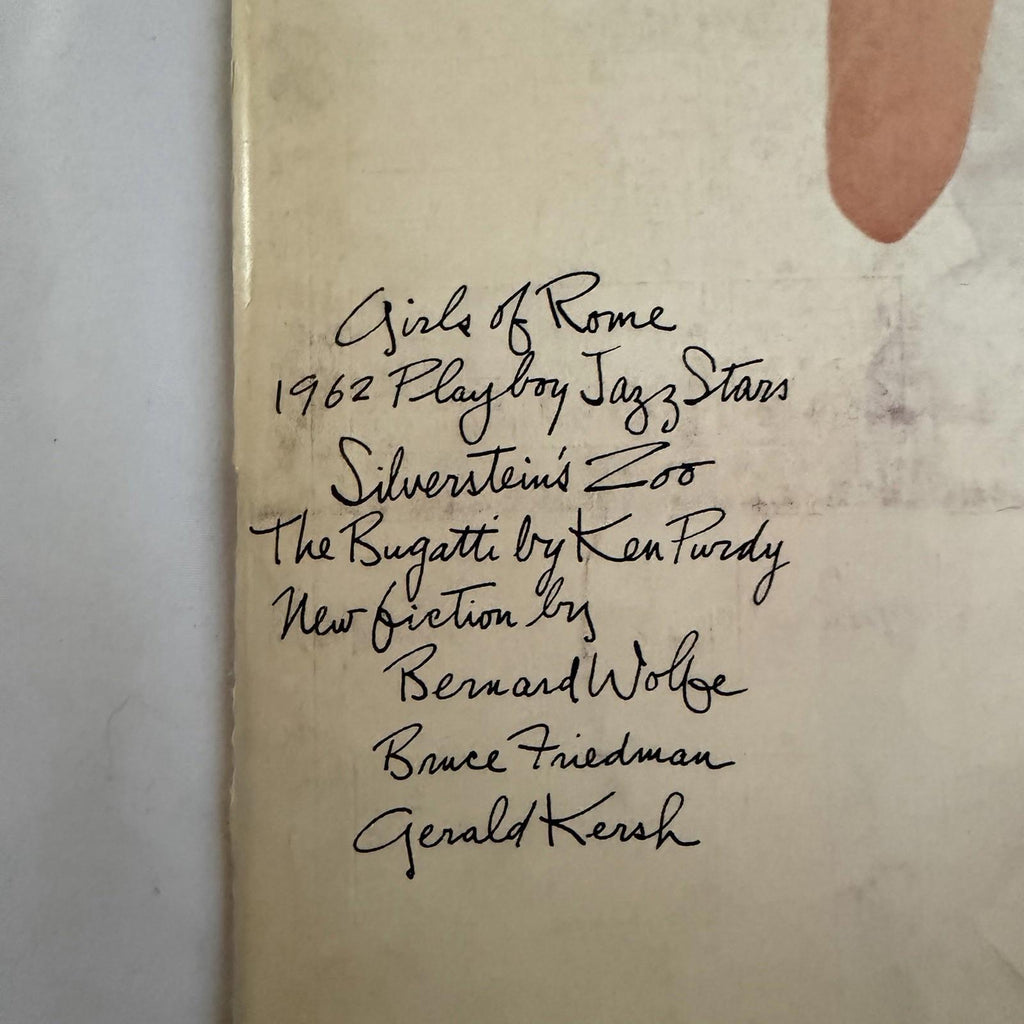 Girls of Rome
1962 Playboy Jazz Stars
Silverstein's Zoo
The Bugatti by Ken Purdy
New fiction by
Bernard Wolfe
Bruce Friedman
Gerald Kersh